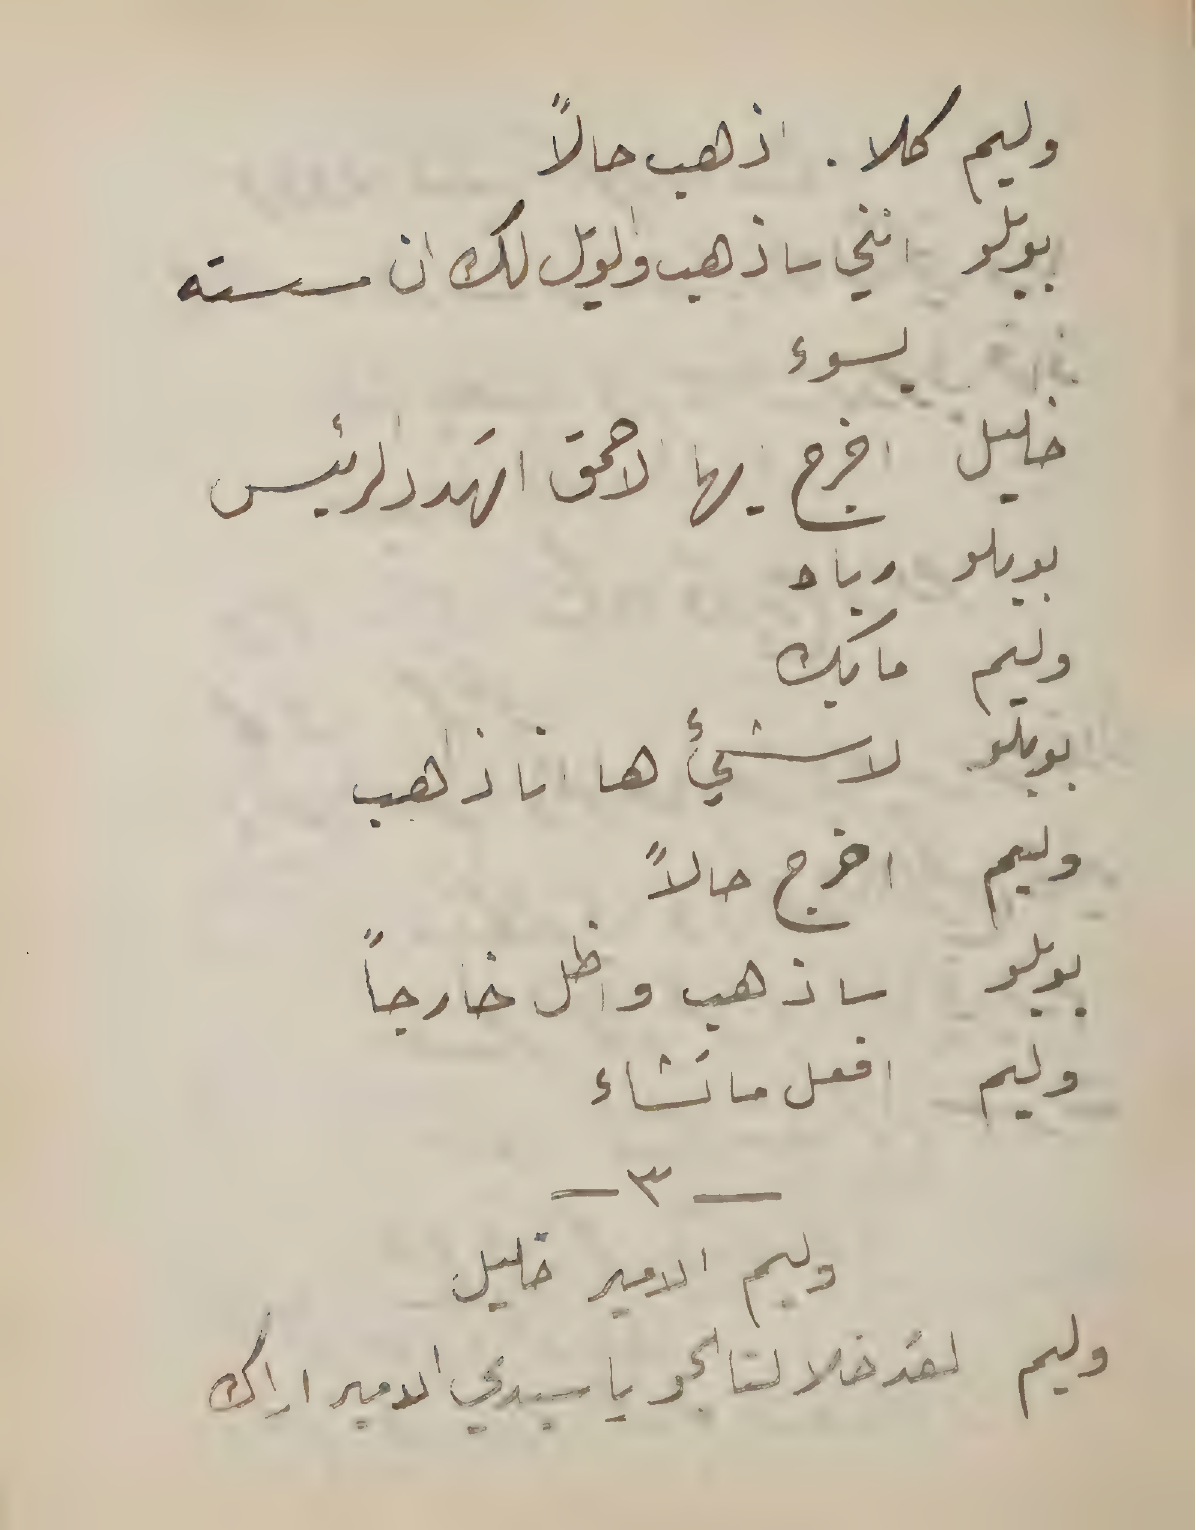 وليم كلا . اذهب حالاً
بوبلو انني ساذهب والويل لك ان مسسته
بسوء
خليل اخرج ايها الاحمق اتهدد الرئيس
بوبلو رباه
وليم ما بك
بوبلو لا شيئ ها انا ذاهب
وليم اخرج حالاً
بوبلو ساذهب واظل خارجاً
وليم افعل ما تشاء
— ٣ —
وليم الامير خليل
وليم لقد خلا لنا الجو يا سيدي الامير اراك